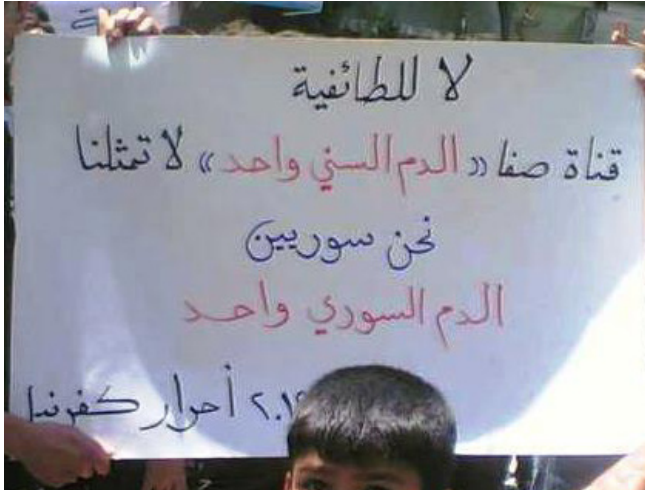 لا للطائفية
قناة صفا «الدم السني واحد» لا تمثلنا
نحن سوريين
الدم السوري واحد
أحرار كفرنبل